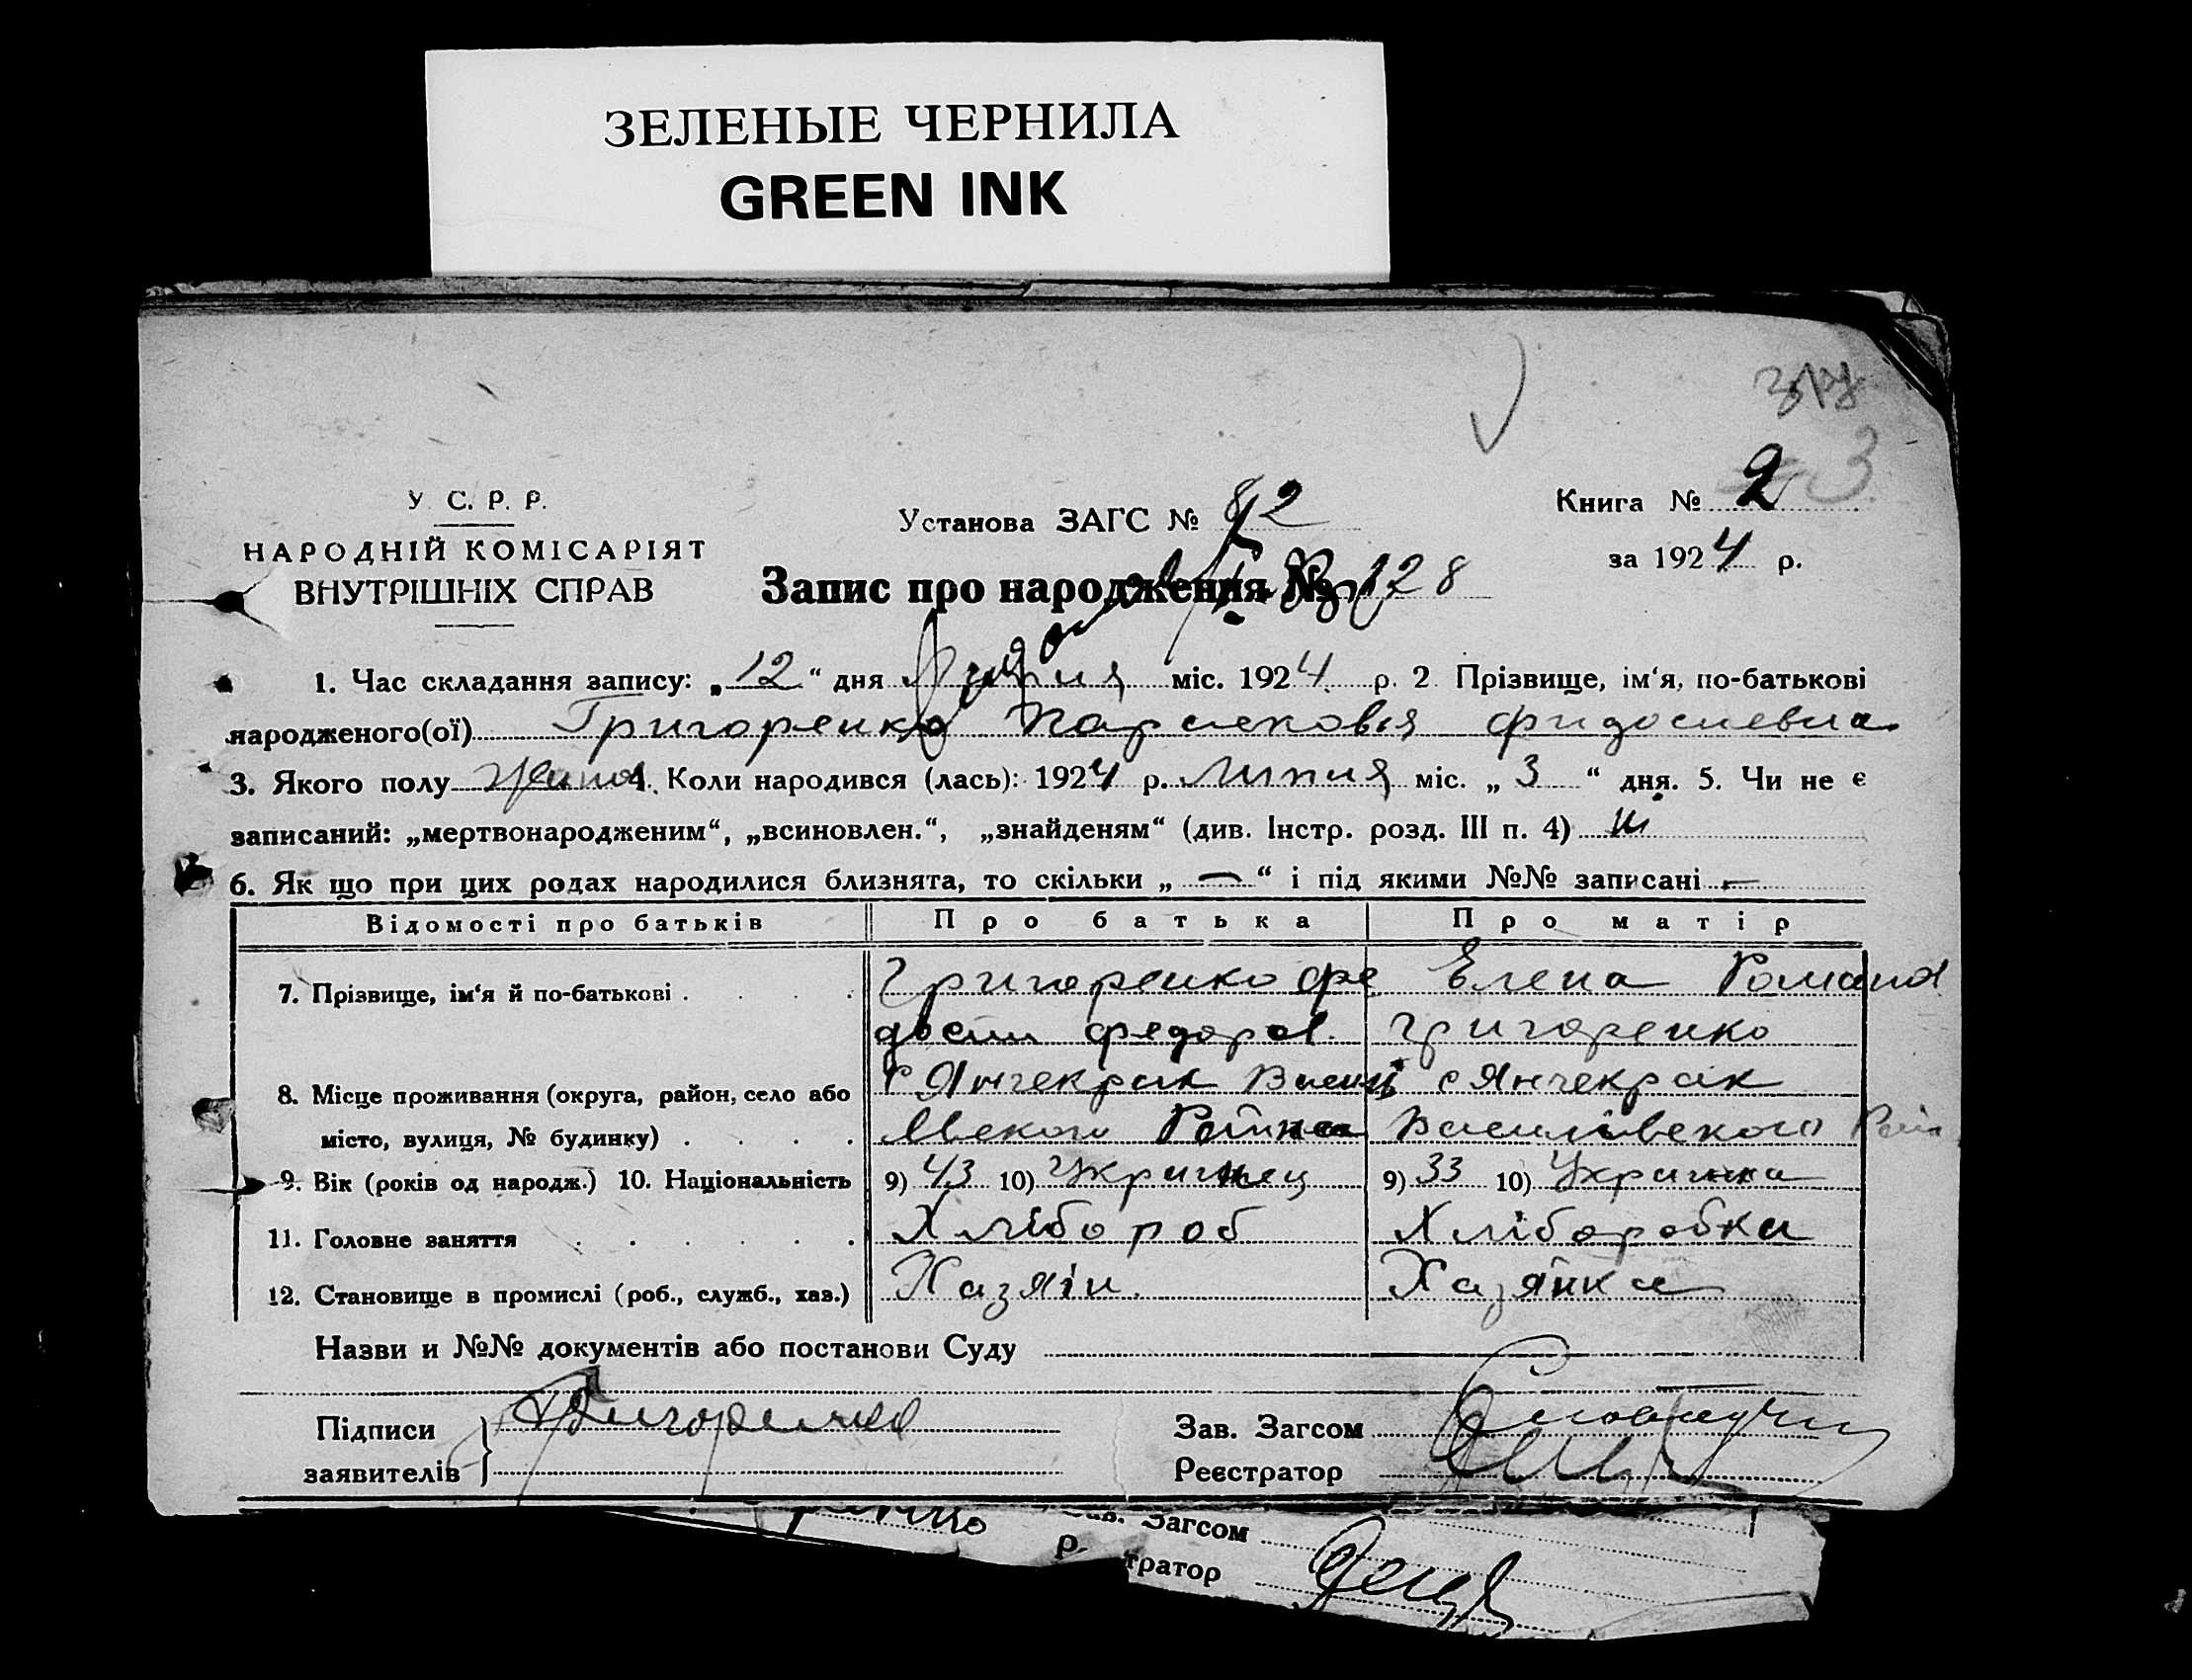 ЗЕЛЕНЫЕ ЧЕРНИЛА
GREEN INK
3
У. С. Р. Р.
НАРОДНІЙ КОМІСАРІЯТ
ВНУТРІШНІХ СПРАВ
Установа ЗАГС №
Книга № 2
за 1924 р.
Запис про народження № 128
1. Час складання запису: „12“ дня міс. 1924 р. 2. Прізвище, ім‘я, по-батькові
народженого(ої) Григоренко Парасковья Фидосиевна
3. Якого полу 4. Коли народився (лась): 1924 р. Липня міс. „3“ дня. 5. Чи не є
записаний: „мертвонародженим“, „всиновлен.“, „знайденям“ (див. Інстр. розд. III п. 4) ні
6. Як що при цих родах народилися близнята, то скільки „—“ і під якими №№ записані —
Відомості про батьків Про батька Про матір
7. Прізвище, ім‘я й по-батькові . . . . Григоренко Фе Елена Роман
досий Федоров. Григоренко
8. Місце проживання (округа, район, село або с Янчекрак Васи с Янчекрак
місто, вулиця, № будинку) . . . . Василівского
9. Вік (років од народж.) 10. Національність 9) 43 10) Украинец 9) 33 10) Украинка
11. Головне заняття . . . . . . Хлібороб Хліборобка
12. Становище в промислі (роб., служб., хаз.) Хазяїн. Хазяйка
Назви и №№ документів або постанови Суду
Підписи
заявителів
Григоренко
Зав. Загсом
Реєстратор
Загсом
р.
тратор